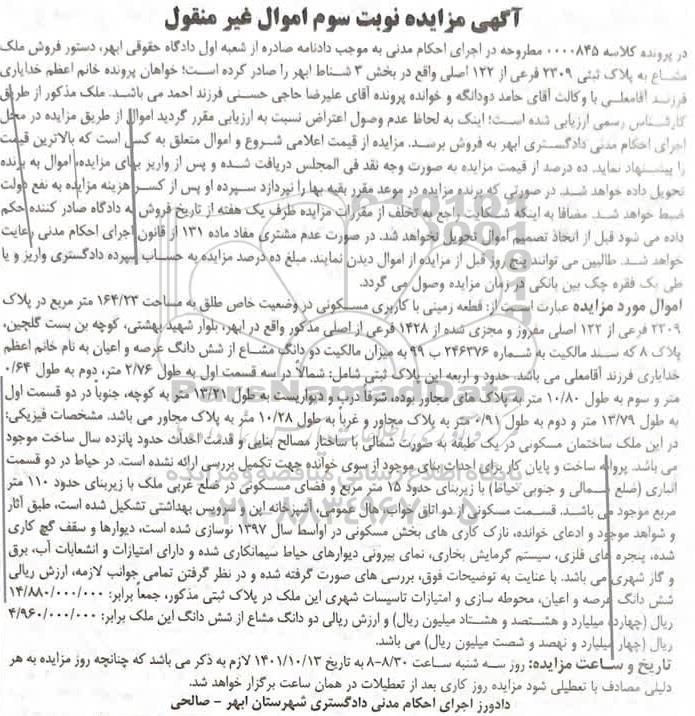 آگهی مزایده نوبت سوم اموال غیر منقول
در پرونده کلاسه ۰۰۰۰۸۴۵ مطروحه در اجرای احکام مدنی به موجب دادنامه صادره از شعبه اول دادگاه حقوقی ابهر، دستور فروش ملک
مشاع به پلاک ثبتی ۲۳۰۹ فرعی از ۱۲۲ اصلی واقع در بخش ۳ شناط ابهر را صادر کرده است؛ خواهان پرونده خانم اعظم خدایاری
فرزند آقامعلی با وکالت آقای حامد دودانگه و خوانده پرونده آقای علیرضا حاجی حسنی فرزند احمد می باشد. ملک مذکور از طریق
کارشناس رسمی ارزیابی شده است؛ اینک به لحاظ عدم وصول اعتراض نسبت به ارزیابی مقرر گردید اموال از طریق مزایده در محل
اجرای احکام مدنی دادگستری ابهر به فروش برسد. مزایده از قیمت اعلامی شروع و اموال متعلق به کسی است که بالاترین قیمت
را پیشنهاد نماید. ده درصد از قیمت مزایده به صورت وجه نقد فی المجلس دریافت شده و پس از واریز بهای مزایده، اموال به برنده
تحویل داده خواهد شد. در صورتی که برنده مزایده در موعد مقرر بقیه بها را نپردازد سپرده او پس از کسر هزینه مزایده به نفع دولت
ضبط خواهد شد. مضافا به اینکه شکایت راجع به تخلف از مقررات مزایده ظرف یک هفته از تاریخ فروش به دادگاه صادر کننده حکم
داده می شود قبل از اتخاذ تصمیم اموال تحویل نخواهد شد. در صورت عدم مشتری مفاد ماده ۱۳۱ از قانون اجرای احکام مدنی رعایت
خواهد شد. طالبین می توانند پنج روز قبل از مزایده از اموال دیدن نمایند. مبلغ ده درصد مزایده به حساب سپرده دادگستری واریز و یا
طی یک فقره چک بین بانکی در زمان مزایده وصول می گردد.
اموال مورد مزایده عبارت است از: قطعه زمینی با کاربری مسکونی در وضعیت خاص طلق به مساحت ۱۶۴/۲۳ متر مربع در پلاک
۲۳۰۹ فرعی از ۱۲۲ اصلی مفروز و مجزی شده از ۱۴۲۸ فرعی از اصلی مذکور واقع در ابهر، بلوار شهید بهشتی، کوچه بن بست گلچین،
پلاک ۸ که سند مالکیت به شماره ۲۴۶۳۷۶ ب ۹۹ به میزان مالکیت دو دانگ مشاع از شش دانگ عرصه و اعیان به نام خانم اعظم
خدایاری فرزند آقامعلی می باشد. حدود و اربعه این پلاک ثبتی شامل: شمالاً در سه قسمت اول به طول ۲/۷۶ متر، دوم به طول ۰/۶۴
متر و سوم به طول ۱۰/۸۰ متر به پلاک های مجاور بوده، شرقاً درب و دیواریست به طول ۱۳/۲۱ متر به کوچه، جنوباً در دو قسمت اول
به طول ۱۳/۷۹ متر و دوم به طول ۰/۹۱ متر به پلاک مجاور و غرباً به طول ۱۰/۲۸ متر به پلاک مجاور می باشد. مشخصات فیزیکی:
در این ملک ساختمان مسکونی در یک طبقه به صورت شمالی با ساختار مصالح بنایی و قدمت احداث حدود پانزده سال ساخت موجود
می باشد. پروانه ساخت و پایان کار برای احداث بنای موجود از سوی خوانده جهت تکمیل بررسی ارائه نشده است. در حیاط در دو قسمت
انباری (ضلع شمالی و جنوبی حیاط) با زیربنای حدود ۱۵ متر مربع و فضای مسکونی در ضلع غربی ملک با زیربنای حدود ۱۱۰ متر
مربع موجود می باشد. قسمت مسکونی از دو اتاق خواب، هال عمومی، آشپزخانه اپن و سرویس بهداشتی تشکیل شده است، طبق آثار
و شواهد موجود و ادعای خوانده، نازک کاری های بخش مسکونی در اواسط سال ۱۳۹۷ نوسازی شده است، دیوارها و سقف گچ کاری
شده، پنجره های فلزی، سیستم گرمایش بخاری، نمای بیرونی دیوارهای حیاط سیمانکاری شده و دارای امتیازات و انشعابات آب، برق
و گاز شهری می باشد. با عنایت به توضیحات فوق، بررسی های صورت گرفته شده و در نظر گرفتن تمامی جوانب لازمه، ارزش ریالی
شش دانگ عرصه و اعیان، محوطه سازی و امتیازات تاسیسات شهری این ملک در پلاک ثبتی مذکور، جمعاً برابر: ۱۴/۸۸۰/۰۰۰/۰۰۰
ریال (چهارده میلیارد و هشتصد و هشتاد میلیون ریال) و ارزش ریالی دو دانگ مشاع از شش دانگ این ملک برابر: ۴/۹۶۰/۰۰۰/۰۰۰
ریال (چهار میلیارد و نهصد و شصت میلیون ریال) می باشد.
تاریخ و ساعت مزایده: روز سه شنبه ساعت ۸/۳۰-۸ به تاریخ ۱۴۰۱/۱۰/۱۳ لازم به ذکر می باشد که چنانچه روز مزایده به هر
دلیلی مصادف با تعطیلی شود مزایده روز کاری بعد از تعطیلات در همان ساعت برگزار خواهد شد.
دادورز اجرای احکام مدنی دادگستری شهرستان ابهر - صالحی
ParsNamadData